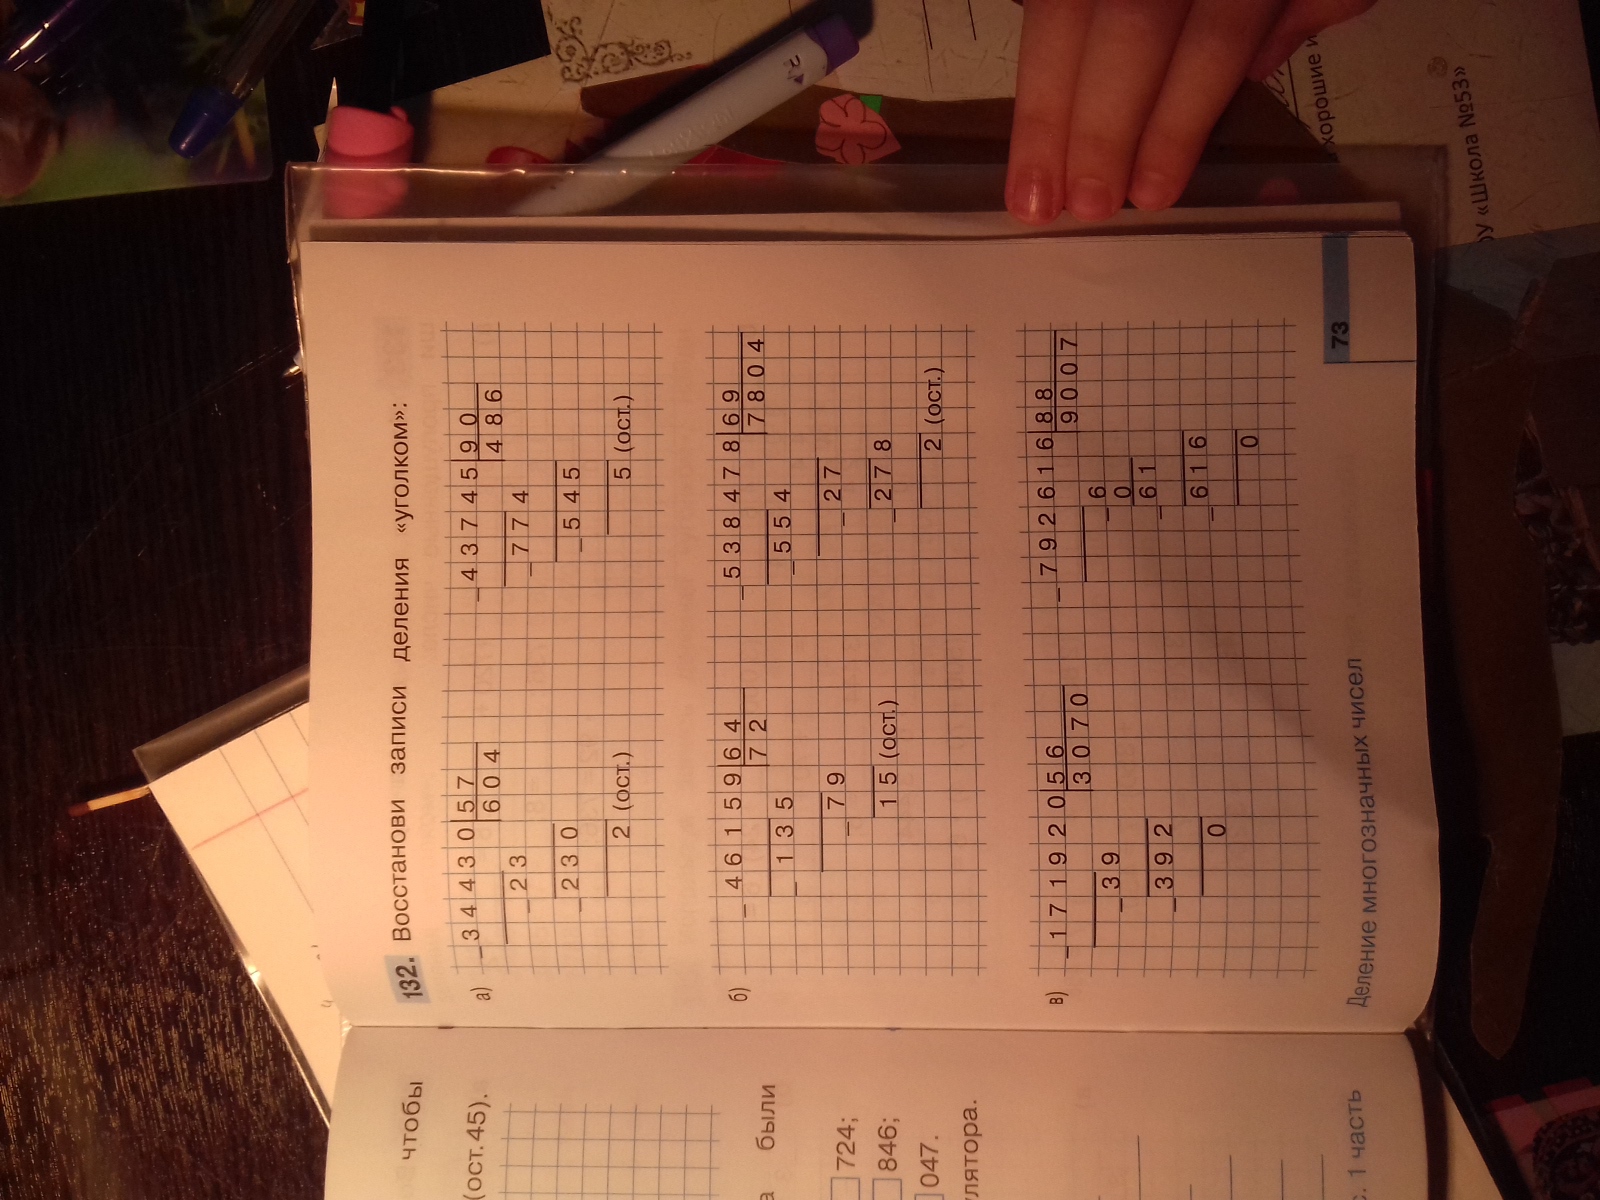 132. Восстанови записи деления «уголком»:
а)
– 3 4 4 3 0 5 7
6 0 4
– 2 3
– 2 3 0
2 (ост.)
– 4 3 7 4 5 9 0
4 8 6
– 7 7 4
– 5 4 5
5 (ост.)
б)
– 4 6 1 5 9 6 4
7 2
– 1 3 5
– 7 9
1 5 (ост.)
– 5 3 8 4 7 8 6 9
7 8 0 4
– 5 5 4
– 2 7
– 2 7 8
2 (ост.)
в)
– 1 7 1 9 2 0 5 6
3 0 7 0
– 3 9
– 3 9 2
0
– 7 9 2 6 1 6 8 8
9 0 0 7
– 6
0
– 6 1
– 6 1 6
0
Деление многозначных чисел
73
чтобы
(ост. 45).
были
724;
846;
047.
лятора.
с. 1 часть
хорошие и
у «Школа №53»